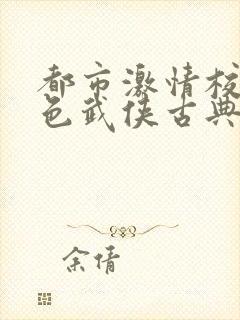 都市激情校
色武侠古典
余倩